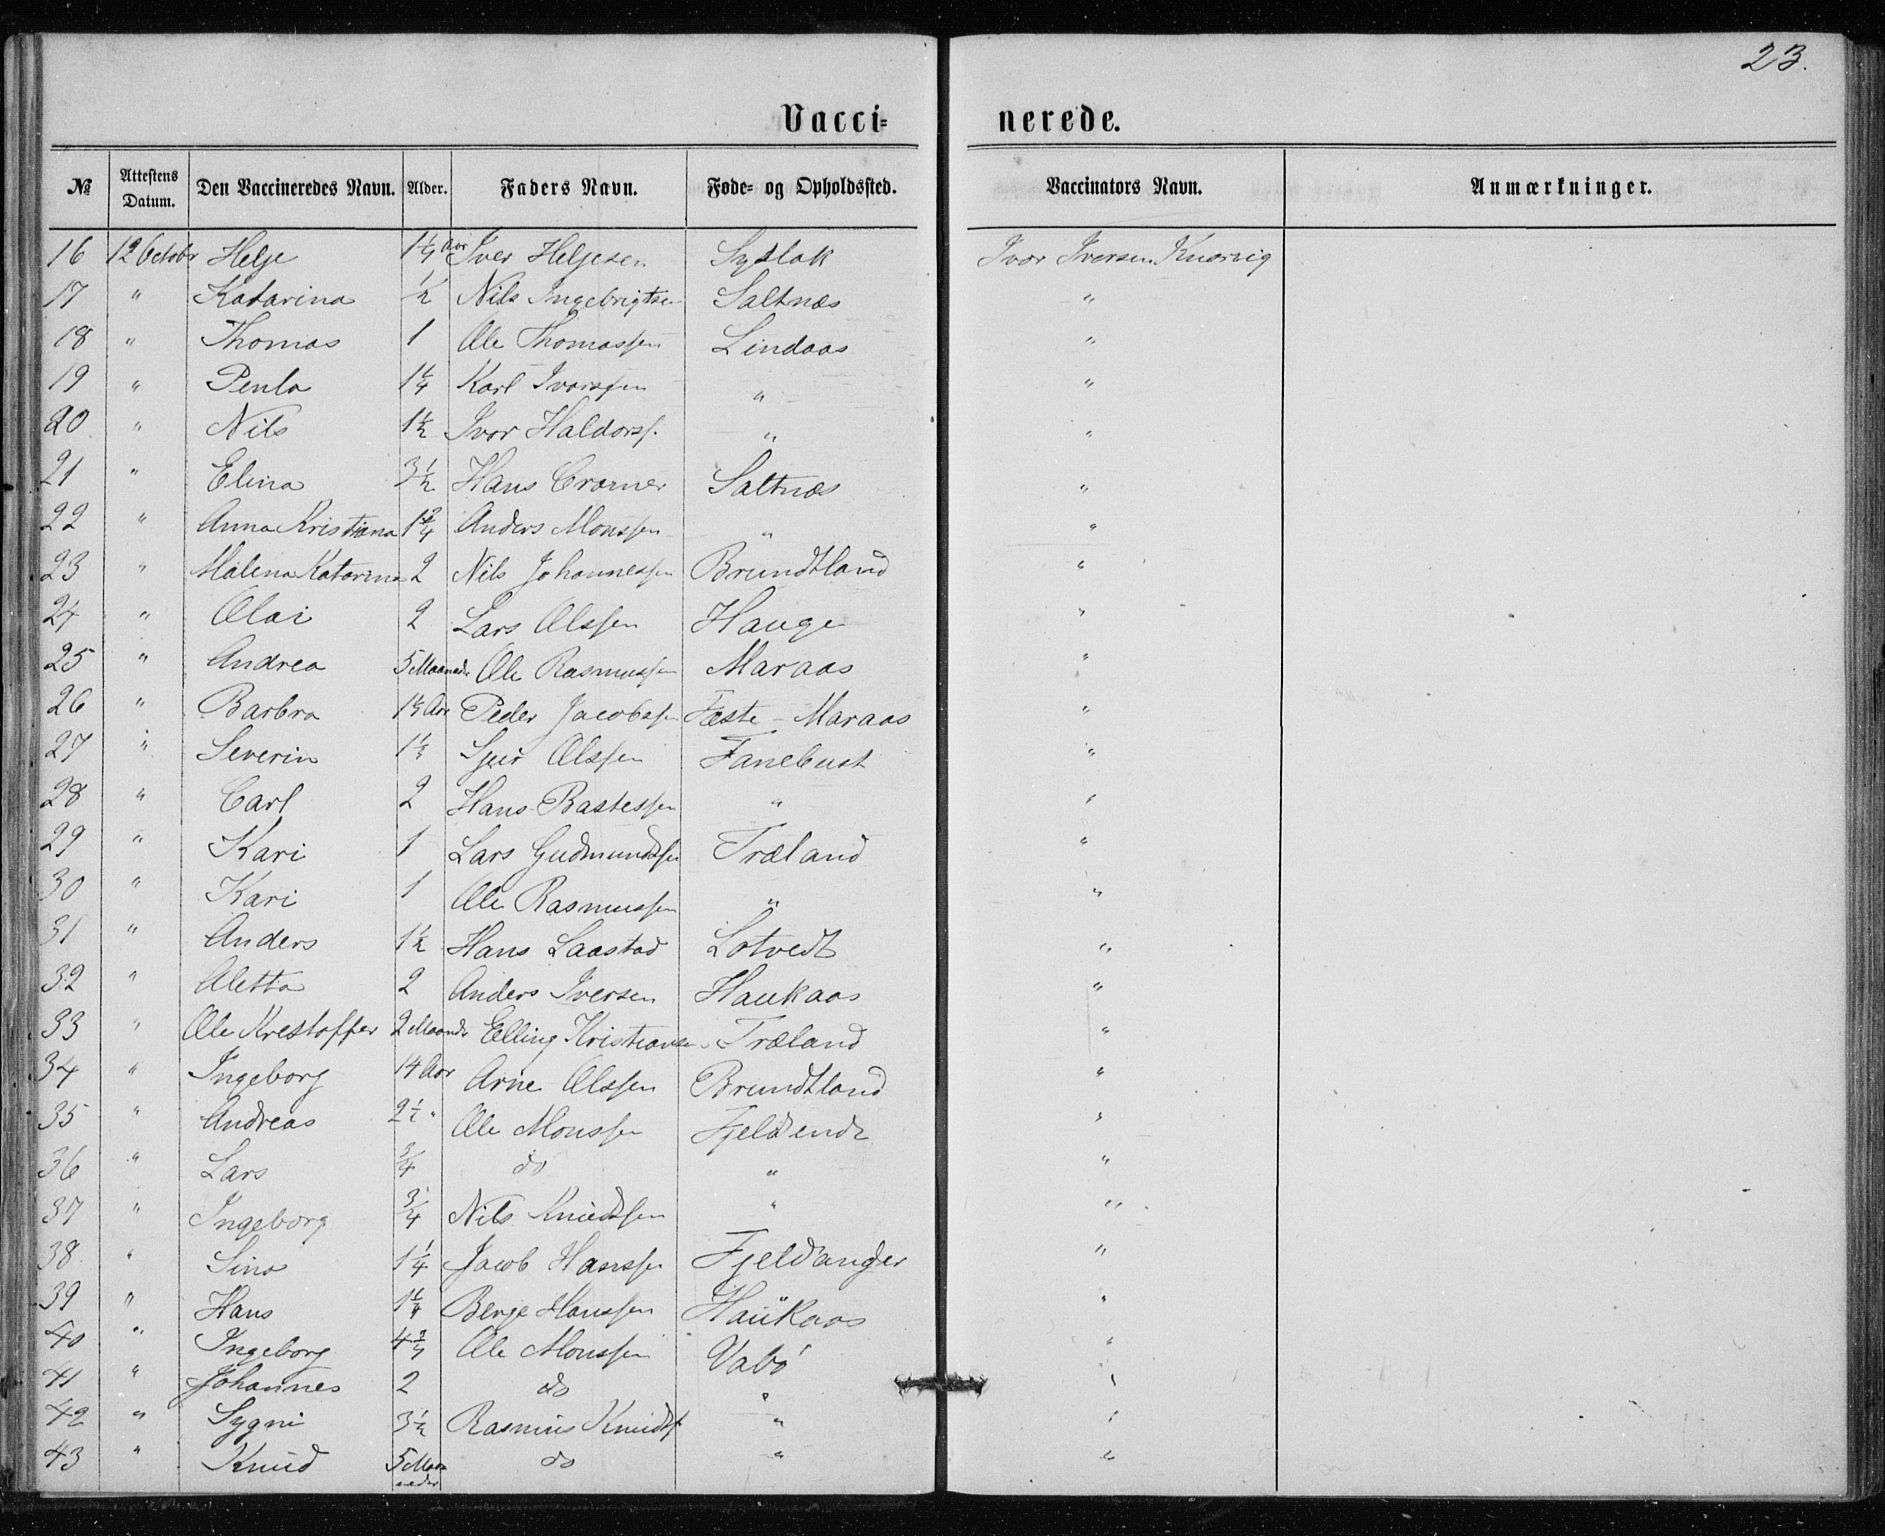 23.
Vacci= nerede.
№ Attestens Datum. Den Vaccineredes Navn. Alder. Faders Navn. Føde- og Opholdssted. Vaccinators Navn. Anmærkninger.
16 12 Octobr Helje 1 1/4 Aar Iver Heljesen Syslak Ivar Iversen Knarvig
17 " Katarina 1/2 Nils Ingebrigtsen Saltnæs "
18 " Thomas 1 Ole Thomassen Lindaas "
19 " Penla 1 1/4 Karl Ivarssen " "
20 " Nils 1 1/2 Ivar Haldorss. " "
21 " Elina 3 1/2 Hans Cramer Saltnæs "
22 " Anna Kristiana 1 3/4 Anders Monssen " "
23 " Malena Katarina 2 Nils Johannessen Brundtland "
24 " Olai 2 Lars Olssen Hauge "
25 " Andrea 5 Maaneder Ole Rasmussen Maraas "
26 " Barbra Aar Peder Jacobssen Fæste - Maraas "
27 " Severin Sjur Olssen Fanebust "
28 " Carl 2 Hans Bastessen " "
29 " Kari 1 Lars Gudmundssen Træland "
30 " Kari 1 Ole Rasmussen " "
31 " Anders 1 1/2 Hans Laastad Lotvedt "
32 " Aletta 2 Anders Iversen Haukaas "
33 " Ole Krestoffer 2 Maander Elling Kristiansen Træland "
34 " Ingeborg 14 Aar Arne Olssen Brundtland "
35 " Andreas 2 1/2 " Ole Monssen Fjeldende "
36 " Lars 3/4 do " "
37 " Ingeborg 3/4 Nils Knudssen " "
38 " Sina 1 1/4 Jacob Hanssen Fjeldanger "
39 " Hans 1 1/4 Berge Hanssen Haukaas "
40 " Ingeborg 4 3/4 Ole Monssen Vabö "
41 " Johannes 2 do " "
42 " Sygni 3 1/2 Rasmus Knudss " "
43 " Knud 5 Maaneder do " "